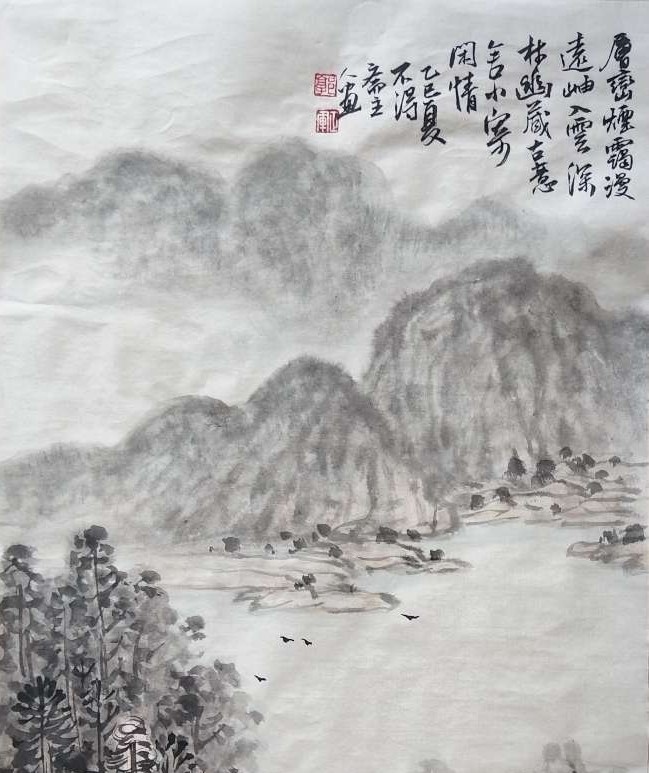 層巒煙靄漫
遠岫入雲深
林幽藏古意
舍小寄
閑情
乙巳夏
不得
斋主
画